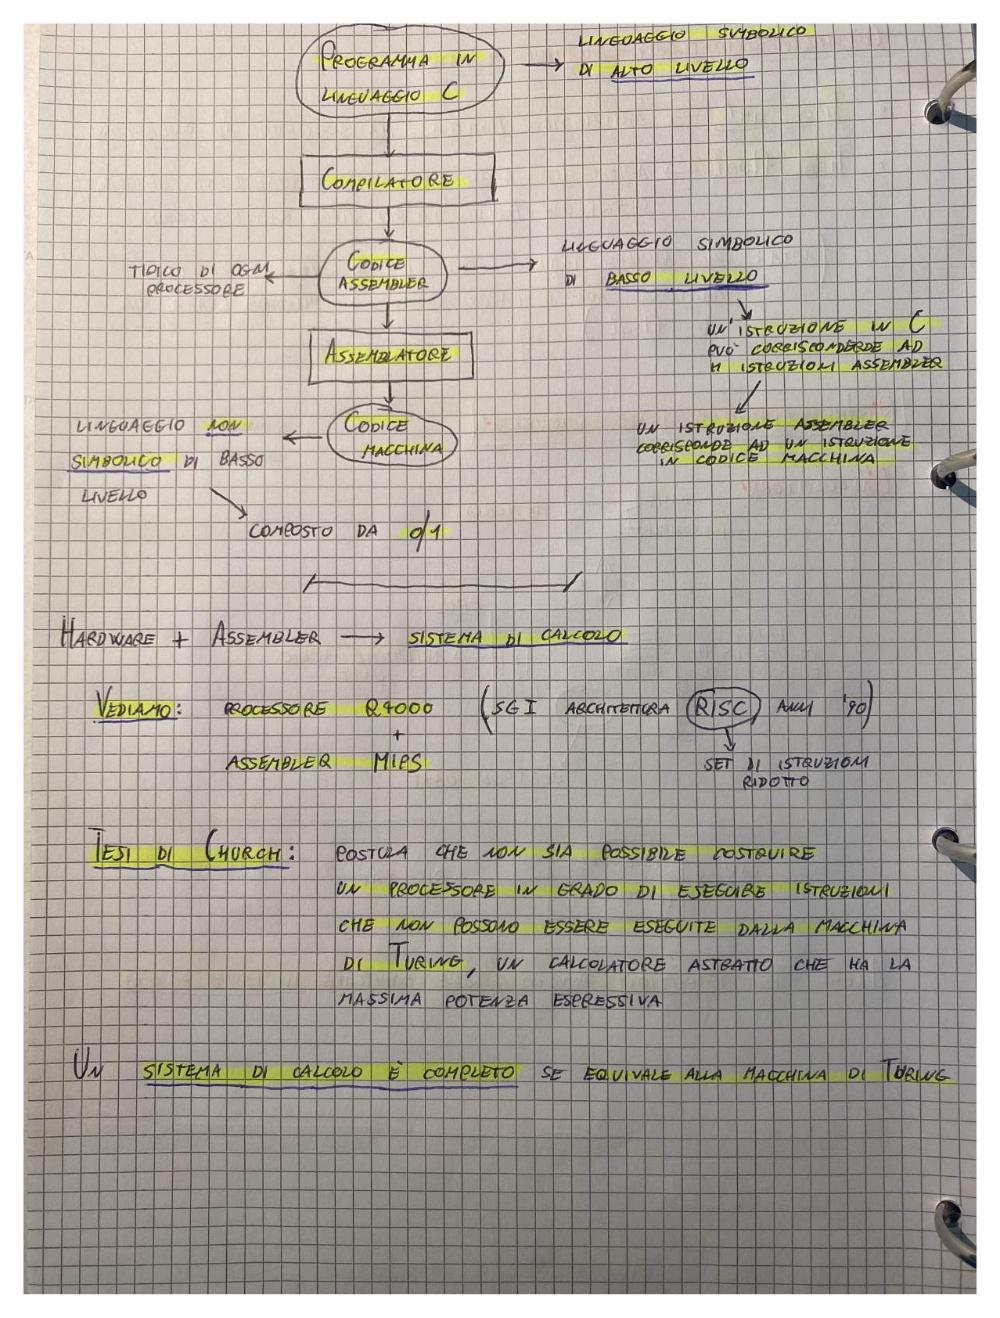 PROGRAMMA IN
LINGUAGGIO C
LINGUAGGIO SIMBOLICO
DI ALTO LIVELLO
COMPILATORE
CODICE
ASSEMBLER
TIPICO DI OGNI
PROCESSORE
LINGUAGGIO SIMBOLICO
DI BASSO LIVELLO
UN' ISTRUZIONE IN C
PUO' CORRISPONDERE AD
N ISTRUZIONI ASSEMBLER
ASSEMBLATORE
CODICE
MACCHINA
LINGUAGGIO NON
SIMBOLICO DI BASSO
LIVELLO
UN ISTRUZIONE ASSEMBLER
CORRISPONDE AD UN ISTRUZIONE
IN CODICE MACCHINA
COMPOSTO DA 0/1
HARDWARE + ASSEMBLER → SISTEMA DI CALCOLO
VEDIAMO: PROCESSORE R4000 (SGI ARCHITETTURA RISC ANNI '90)
+
ASSEMBLER MIPS
SET DI ISTRUZIONI
RIDOTTO
TESI DI CHURCH: POSTULA CHE NON SIA POSSIBILE COSTRUIRE
UN PROCESSORE IN GRADO DI ESEGUIRE ISTRUZIONI
CHE NON POSSONO ESSERE ESEGUITE DALLA MACCHINA
DI TURING, UN CALCOLATORE ASTRATTO CHE HA LA
MASSIMA POTENZA ESPRESSIVA
UN SISTEMA DI CALCOLO È COMPLETO SE EQUIVALE ALLA MACCHINA DI TURING